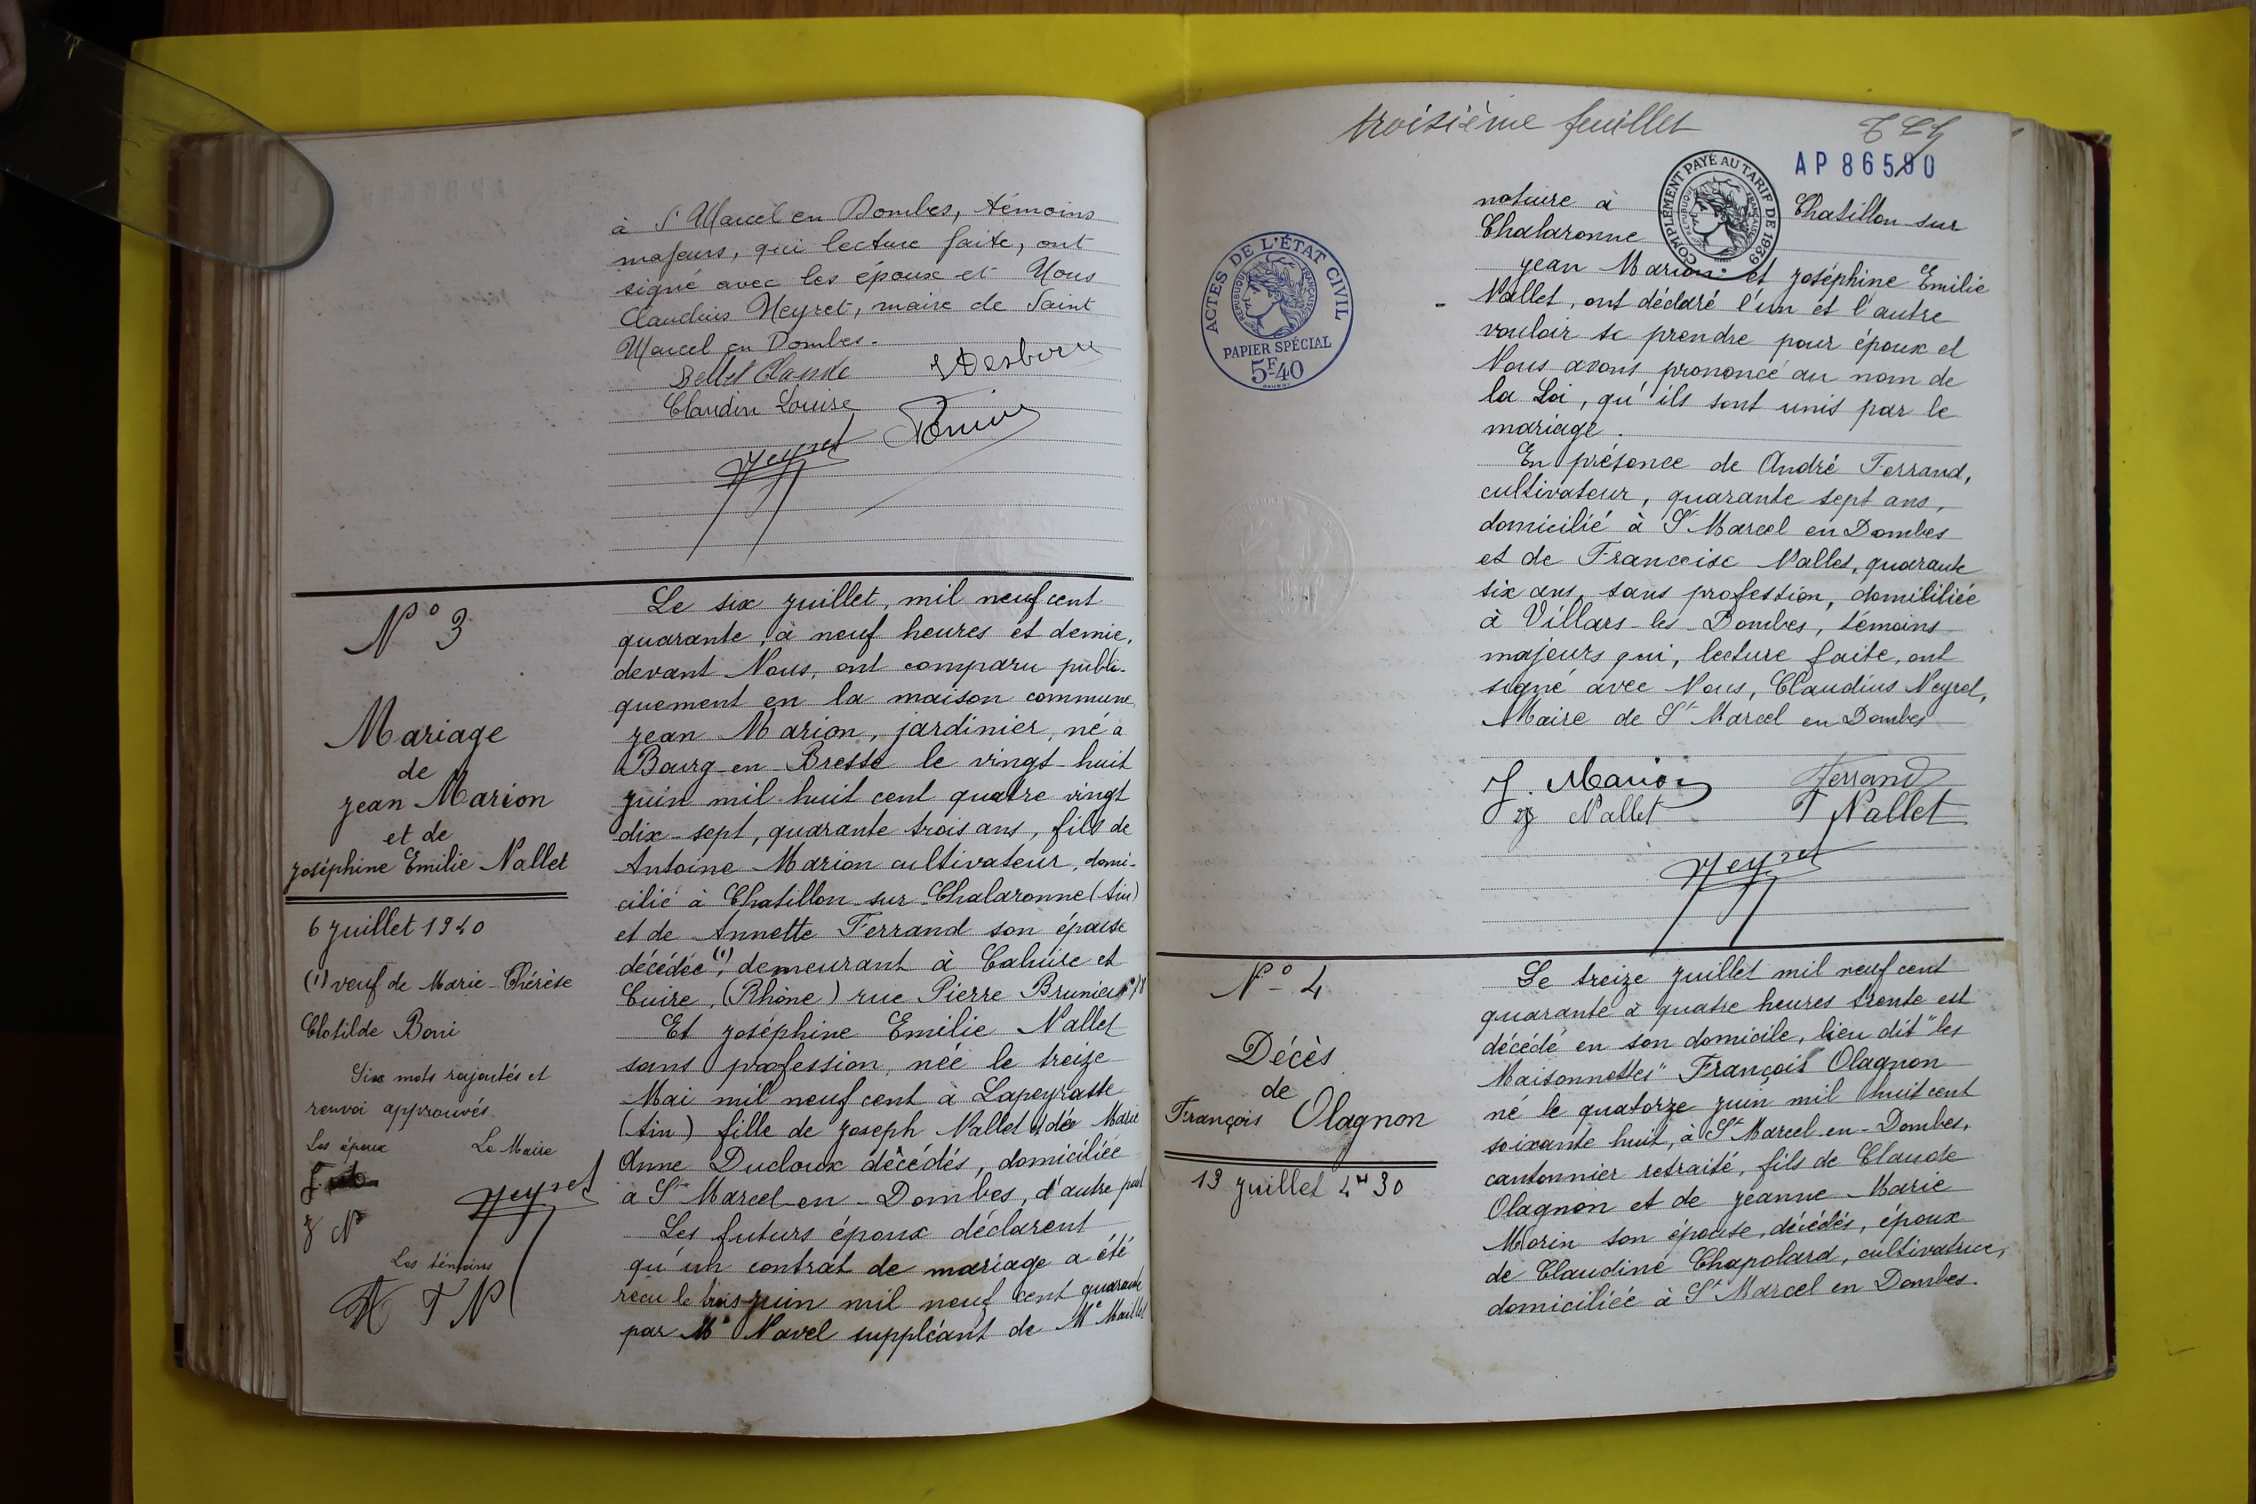 à St Marcel en Dombes, témoins
majeurs, qui lecture faite, ont
signé avec les époux et Nous
Claudius Neyret, maire de Saint
Marcel en Dombes.
Claudin Louise
Neyret
N° 3
Mariage
de
Jean Marion
et de
Joséphine Emilie Nallet
6 Juillet 1940
(1) veuf de Marie-Thérèse
Clotilde Boni
Six mots rajoutés et
renvoi approuvés
Les époux Le Maire
J N Neyret
Les témoins
F N
Le six Juillet, mil neuf cent
quarante, à neuf heures et demie,
devant Nous, ont comparu publi-
quement en la maison commune
Jean Marion, jardinier, né à
Bourg-en-Bresse le vingt-huit
Juin mil-huit cent quatre vingt
dix-sept, quarante trois ans, fils de
Antoine Marion cultivateur, domi-
cilié à Chatillon-sur-Chalaronne (Ain)
et de Annette Ferrand son épouse
décédée (1), demeurant à Caluire et
Cuire, (Rhône) rue Pierre Brunier n° 78
Et Joséphine Emilie Nallet
sans profession, née le treize
Mai mil neuf cent à Lapeyrouse
(Ain) fille de Joseph Nallet & de Marie
Anne Ducloux décédés, domiciliée
à St Marcel-en-Dombes, d'autre part
Les futurs époux déclarent
qu'un contrat de mariage a été
recu le trois Juin mil neuf cent quarante
par Me Navel suppléant de Me
troisième feuillet
AP 86580
COMPLÉMENT PAYÉ AU TARIF DE 1939
RÉPUBLIQUE FRANÇAISE
ACTES DE L'ÉTAT CIVIL
RÉPUBLIQUE FRANÇAISE
PAPIER SPÉCIAL
5F40
notaire à Chatillon-sur
Chalaronne
Jean Marion et Joséphine Emilie
Nallet, ont déclaré l'un et l'autre
vouloir se prendre pour époux et
Nous avons prononcé au nom de
la Loi, qu'ils sont unis par le
mariage.
En présence de André Ferrand,
cultivateur, quarante sept ans,
domicilié à St Marcel en Dombes
et de Francoise Nallet, quarante
six ans, sans profession, domiliciée
à Villars-les-Dombes, témoins
majeurs qui, lecture faite, ont
signé avec Nous, Claudius Neyret,
Maire de St Marcel en Dombes
J. Marion Ferrand
J Nallet F Nallet
Neyret
N° 4
Décès
de
François Olagnon
13 Juillet 4H 30
Le treize Juillet mil neuf cent
quarante à quatre heures trente est
décédé en son domicile, lieu dit "les
Maisonnettes" François Olagnon
né le quatorze Juin mil huit cent
soixante huit, à St Marcel-en-Dombes,
cantonnier retraité, fils de Claude
Olagnon et de Jeanne-Marie
Morin son épouse, décédés, époux
de Claudine Chapolard, cultivatrice,
domiciliée à St Marcel en Dombes.